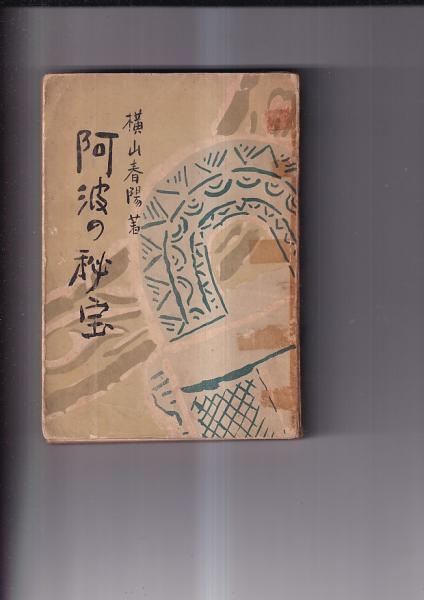 横山春陽著
阿波の秘宝